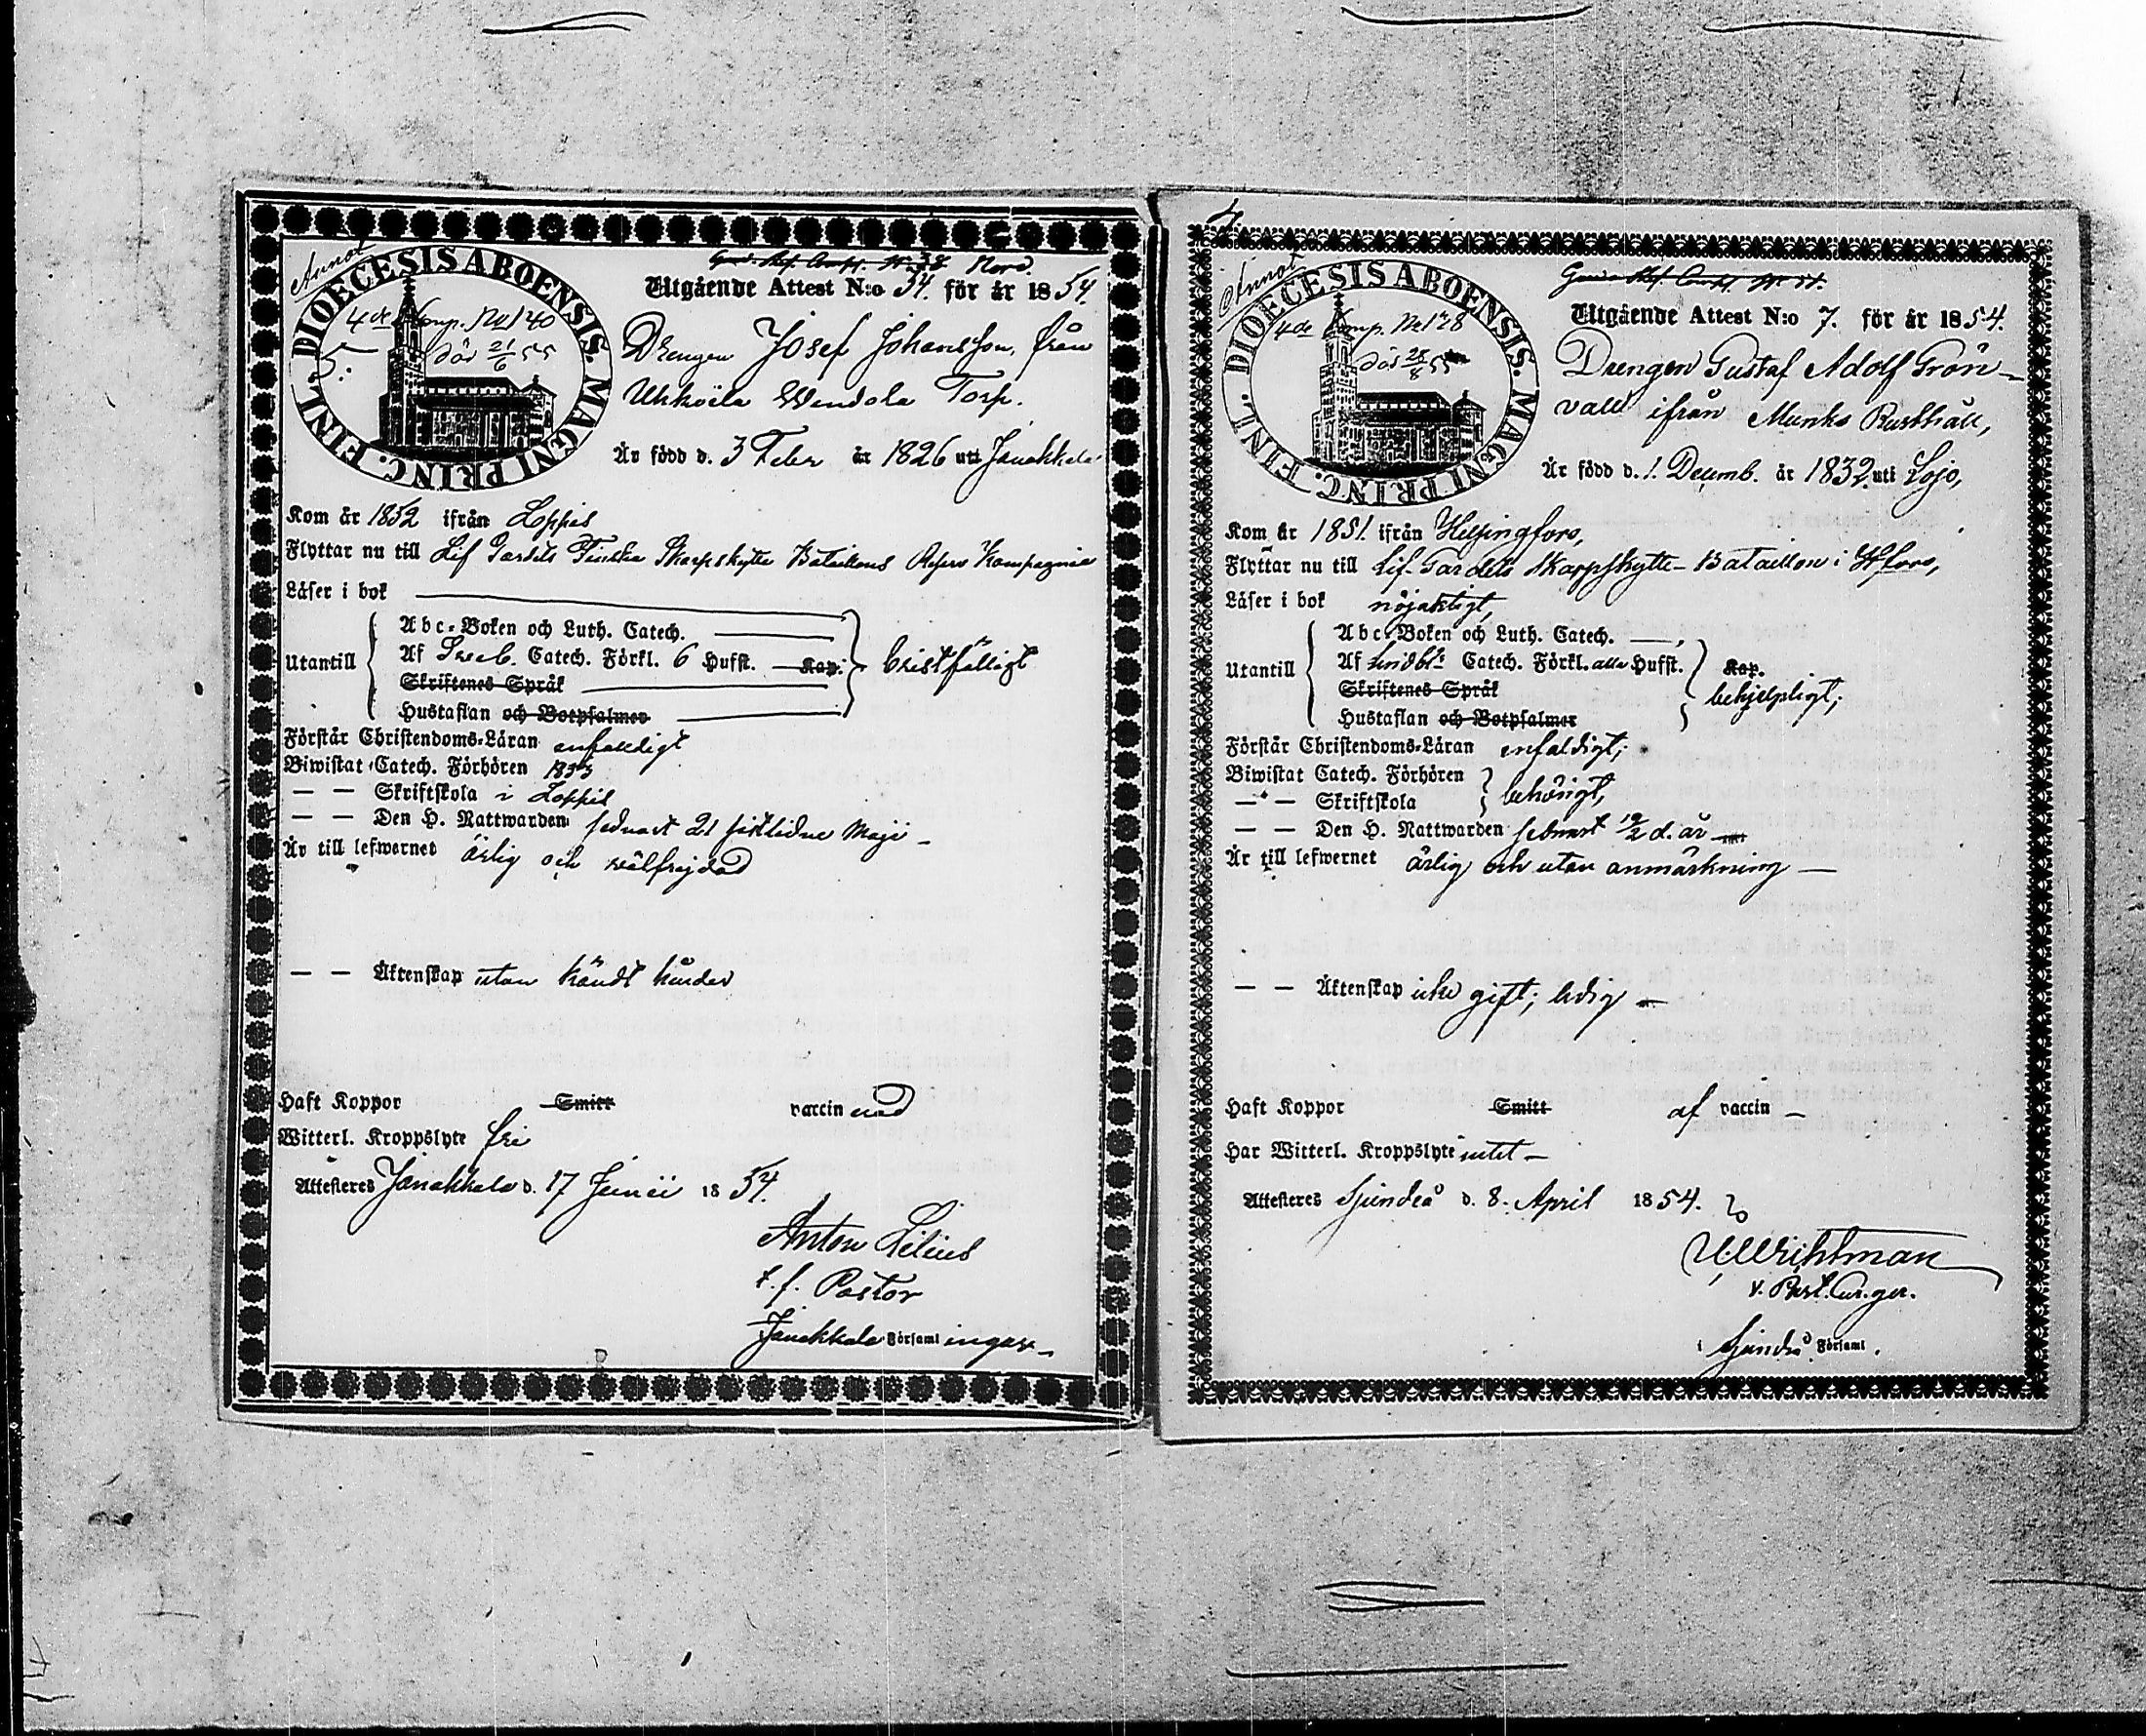 Annot
DIOECESIS ABOENSIS. MAGNI PRINC. FINL.
4de Komp. No 140
död 21/6 55
5.
Nord.
Utgående Attest N:o 54. för år 1854.
Drengen Josef Johansson, från
Uhkoila Wendola Torp.
Är född d. 3 Febr år 1826 uti Janakkala
Kom år 1852 ifrån Loppis
Flyttar nu till Lif Gardets Finska Skarpskytte Bataillons Reserv Kompagnie
Läser i bok
Utantill
Abc-Boken och Luth. Catech.
Af Sveb. Catech. Förkl. 6 Hufst. Kap.
Skriftenes Språk
Hustaflan och Botpsalmer
bristfälligt
Förstår Christendoms-Läran enfaldigt
Biwistat Catech. Förhören 1853
— — Skriftskola i Loppis
— — Den H. Nattwarden sednast 21 sistlidne Maji —
Är till lefwernet ärlig och välfrejdad
— — Äktenskap utan kändt hinder
Haft Koppor Smitt vaccinerad
Witterl. Kroppslyte fri
Attesteres Janakkala d. 17 Junii 1854.
Anton Lilius
t. f. Pastor
Janakkala Församlingar —
Annot
DIOECESIS ABOENSIS. MAGNI PRINC. FINL.
4de Komp. No 128
död 28/8 55
Utgående Attest N:o 7. för år 1854.
Drengen Gustaf Adolf Grön-
vall ifrån Munks Rusthåll,
Är född d. 1. Decemb. år 1832 uti Lojo,
Kom år 1851. ifrån Helsingfors,
Flyttar nu till Lif-Gardets Skarpskytte-Bataillon i Hfors,
Läser i bok nöjaktigt,
Utantill
Abc-Boken och Luth. Catech. —,
Af Svidbl: Catech. Förkl. alla Hufst. Kap.
Skriftenes Språk
Hustaflan och Botpsalmer
behjelpligt;
Förstår Christendoms-Läran enfaldigt;
Biwistat Catech. Förhören
— — Skriftskola
behörigt,
— — Den H. Nattwarden sednast 19/2 d. år
Är till lefwernet ärlig och utan anmärkning —
— — Äktenskap icke gift; ledig —
Haft Koppor Smitt af vaccin —
Har Witterl. Kroppslyte intet —
Attesteres Sjundeå d. 8. April 1854.
v. Past. Cur. ger.
i Sjundeå Församl.